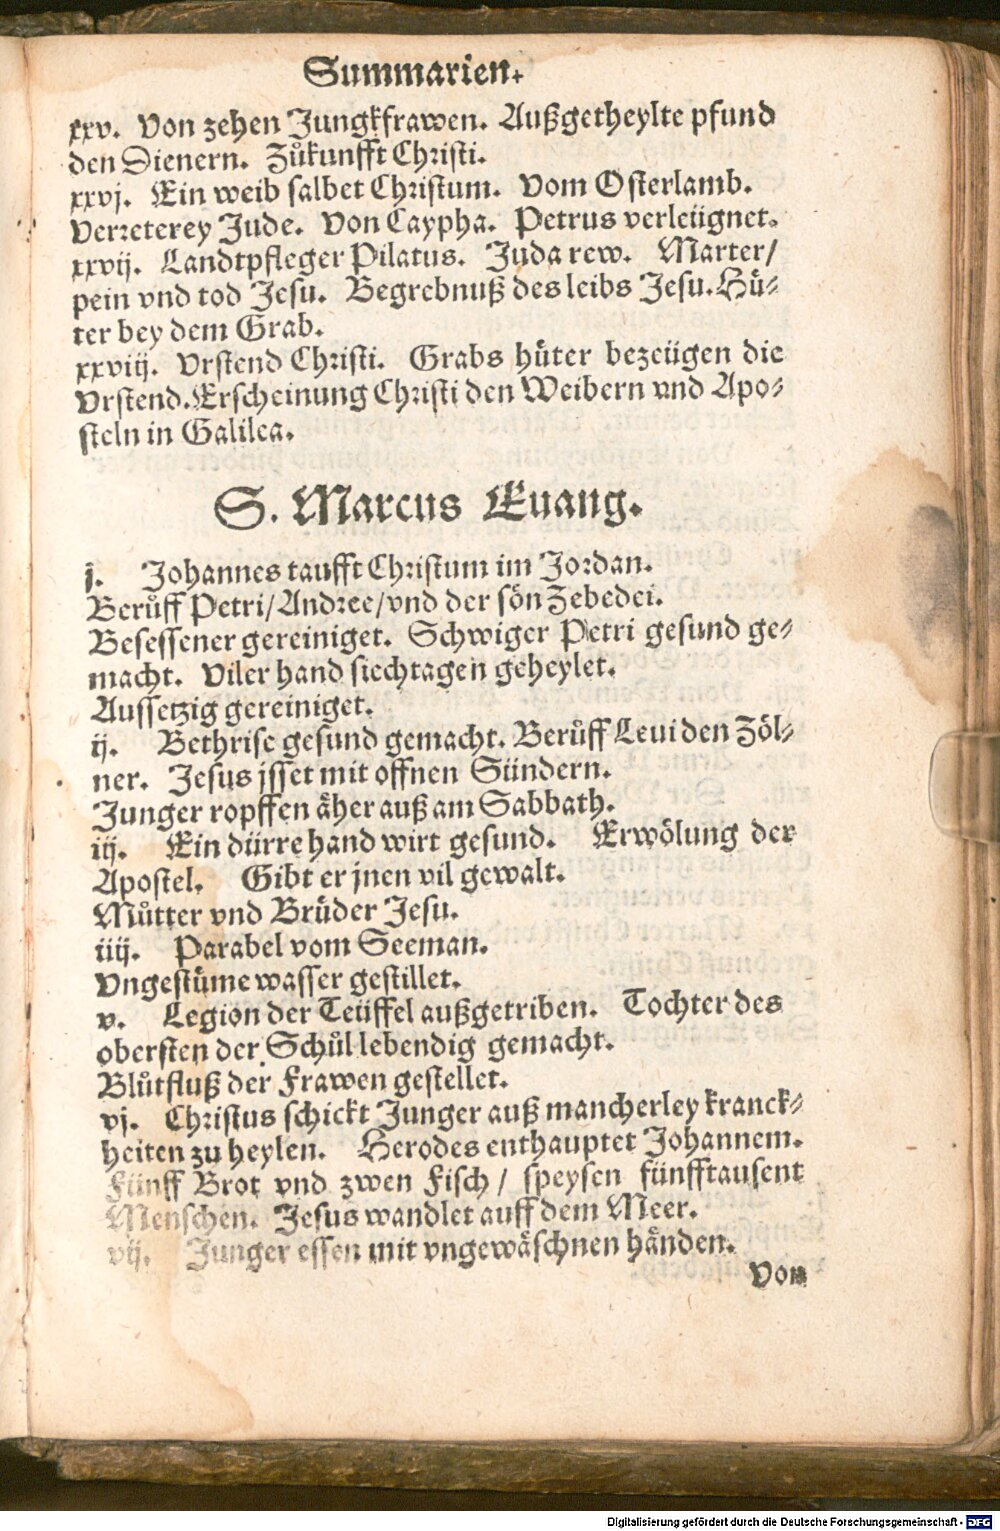 Summarien.
xxv. Von zehen Jungkfrawen. Außgetheylte pfund
den Dienern. Zůkunfft Christi.
xxvj. Ein weib salbet Christum. Vom Osterlamb.
Verreterey Jude. Von Caypha. Petrus verleügnet.
xxvij. Landtpfleger Pilatus. Juda rew. Marter/
pein vnd tod Jesu. Begrebnuß des leibs Jesu. Hü⸗
ter bey dem Grab.
xxviij. Vrstend Christi. Grabs hüter bezeügen die
Vrstend. Erscheinung Christi den Weibern vnd Apo⸗
steln in Galilea.
S. Marcus Euang.
j. Johannes taufft Christum im Jordan.
Berůff Petri/ Andree/ vnd der sön Zebedei.
Besessener gereiniget. Schwiger Petri gesund ge⸗
macht. Viler hand siechtagen geheylet.
Aussetzig gereiniget.
ij. Bethrise gesund gemacht. Berůff Leui den Zöl⸗
ner. Jesus jsset mit offnen Sündern.
Junger ropffen äher auß am Sabbath.
iij. Ein dürre hand wirt gesund. Erwölung der
Apostel. Gibt er jnen vil gewalt.
Můtter vnd Brüder Jesu.
iiij. Parabel vom Seeman.
Vngestüme wasser gestillet.
v. Legion der Teüffel außgetriben. Tochter des
obersten der Schůl lebendig gemacht.
Blůtfluß der Frawen gestellet.
vj. Christus schickt Junger auß mancherley kranck⸗
heiten zu heylen. Herodes enthauptet Johannem.
Fünff Brot vnd zwen Fisch/ speysen fünfftausent
Menschen. Jesus wandlet auff dem Meer.
vij. Junger essen mit vngewäschnen händen.
Von
Digitalisierung gefördert durch die Deutsche Forschungsgemeinschaft - DFG